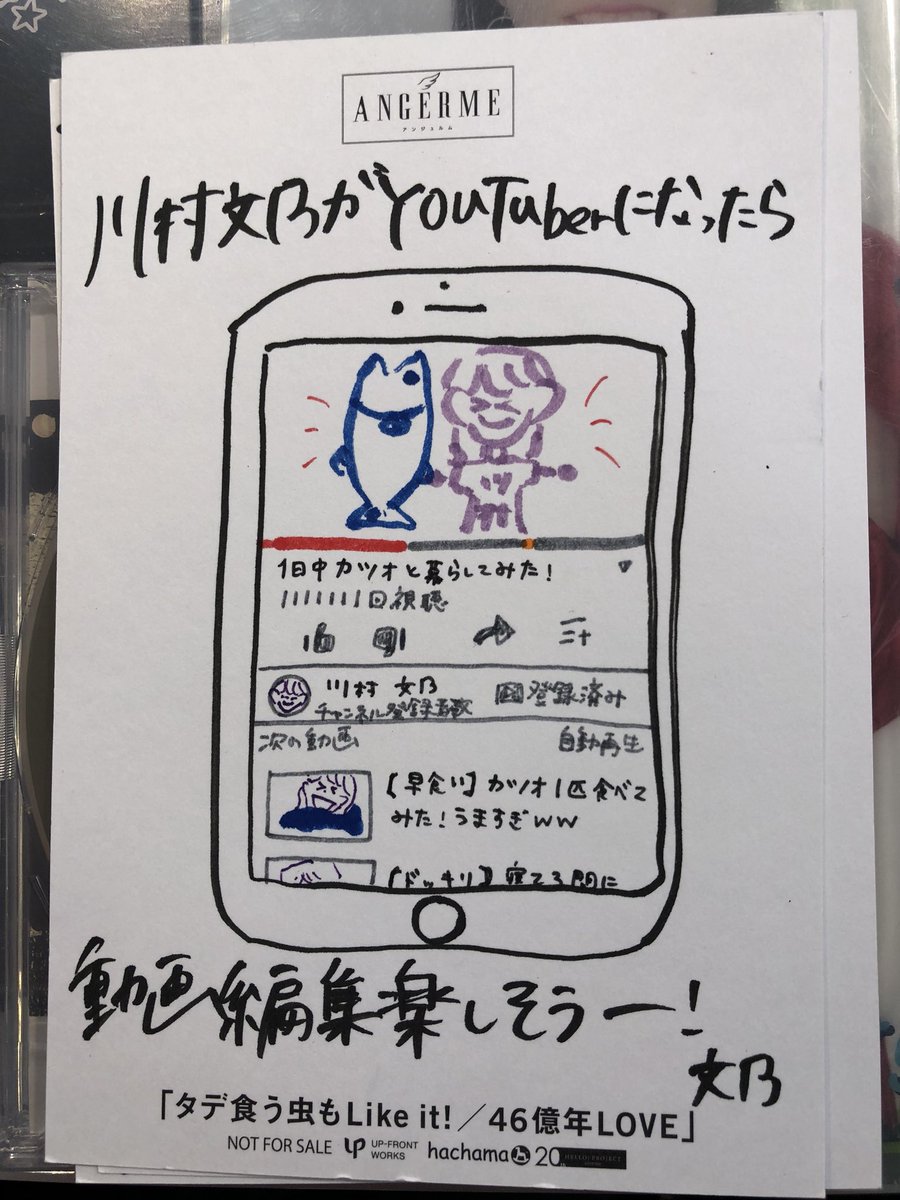 ANGERME
アンジュルム
川村文乃がYouTuberになったら
1日中カツオと暮らしてみた!
11111111回視聴
川村 文乃
チャンネル登録者数
登録済み
次の動画
自動再生
【早食い】カツオ1匹食べて
みた!うますぎww
【ドッキリ】寝てる間に
動画編集楽しそうー!
文乃
「タデ食う虫もLike it!/46億年LOVE」
NOT FOR SALE UP-FRONT WORKS hachama 20th HELLO! PROJECT